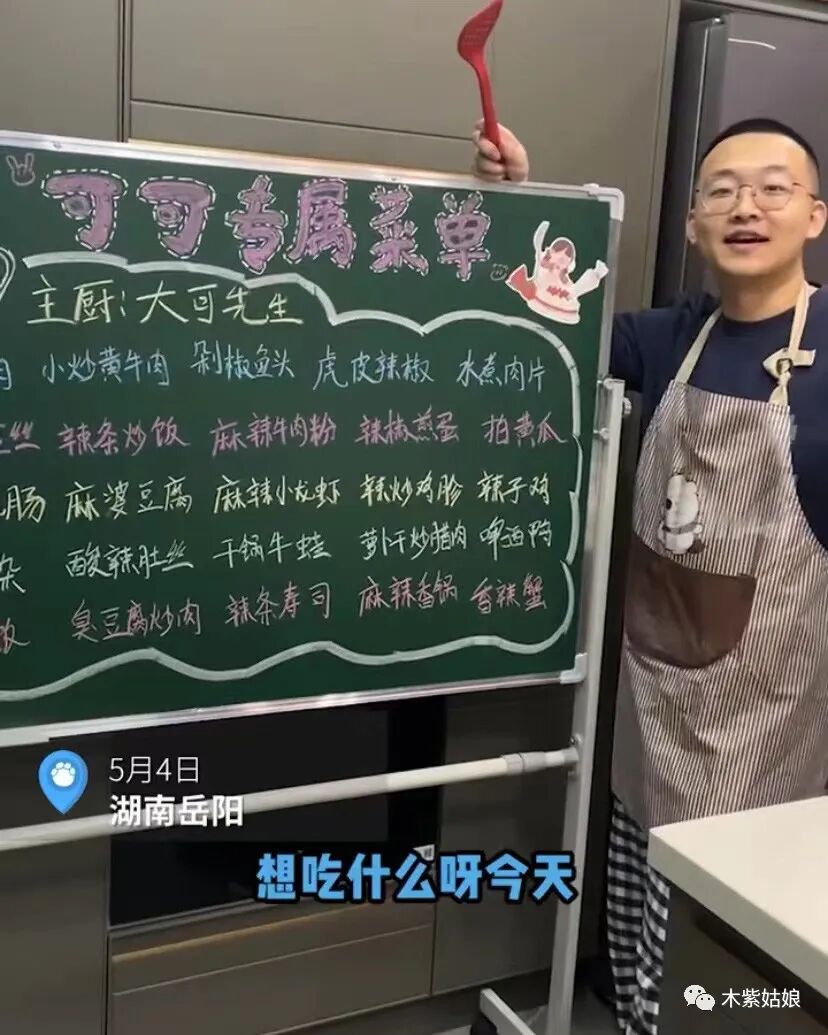 可可专属菜单
主厨:大可先生
肉 小炒黄牛肉 剁椒鱼头 虎皮辣椒 水煮肉片
丝 辣条炒饭 麻辣牛肉粉 辣椒煎蛋 拍黄瓜
肠 麻婆豆腐 麻辣小龙虾 辣炒鸡胗 辣子鸡
杂 酸辣肚丝 干锅牛蛙 萝卜干炒腊肉 啤酒鸭
饭 臭豆腐炒肉 辣条寿司 麻辣香锅 香辣蟹
5月4日
湖南岳阳
想吃什么呀今天
木紫姑娘